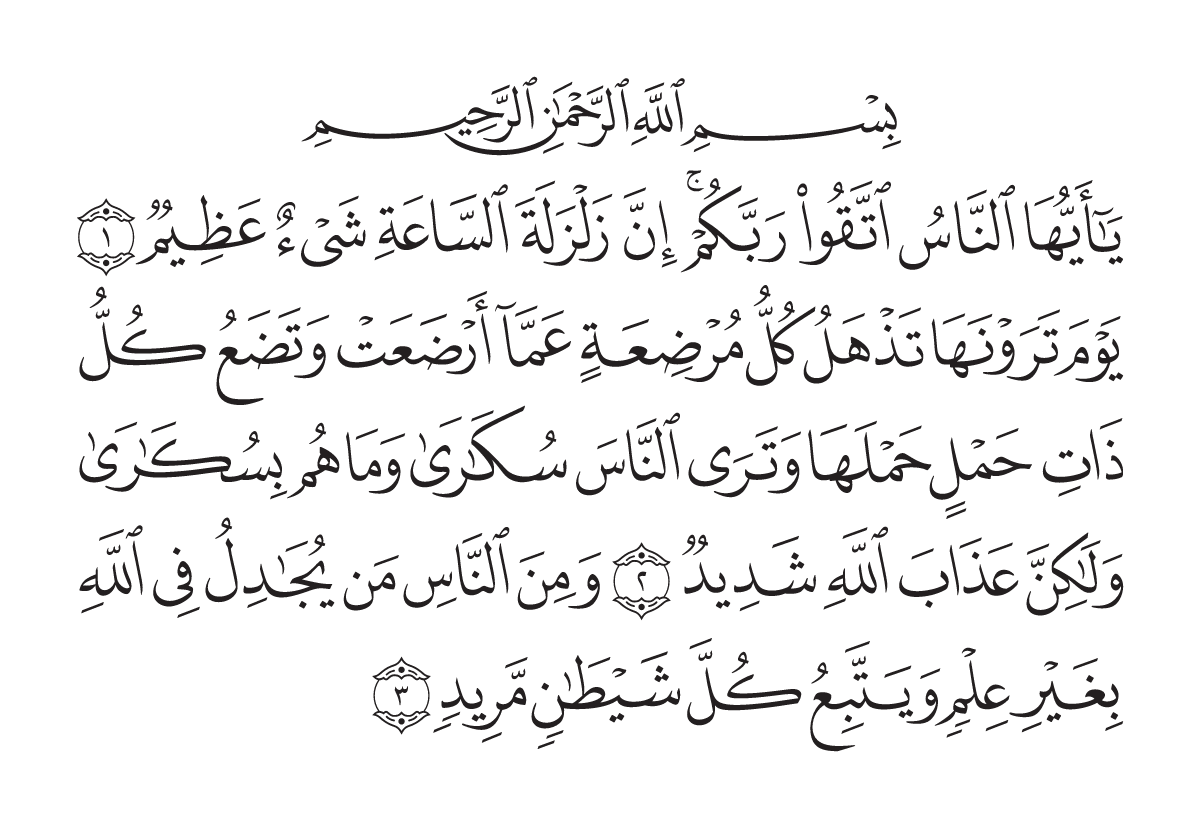 بِسْمِ ٱللَّهِ ٱلرَّحْمَٰنِ ٱلرَّحِيمِ
يَٰٓأَيُّهَا ٱلنَّاسُ ٱتَّقُوا۟ رَبَّكُمْ ۚ إِنَّ زَلْزَلَةَ ٱلسَّاعَةِ شَىْءٌ عَظِيمٌ ١
يَوْمَ تَرَوْنَهَا تَذْهَلُ كُلُّ مُرْضِعَةٍ عَمَّآ أَرْضَعَتْ وَتَضَعُ كُلُّ
ذَاتِ حَمْلٍ حَمْلَهَا وَتَرَى ٱلنَّاسَ سُكَٰرَىٰ وَمَا هُم بِسُكَٰرَىٰ
وَلَٰكِنَّ عَذَابَ ٱللَّهِ شَدِيدٌ ٢ وَمِنَ ٱلنَّاسِ مَن يُجَٰدِلُ فِى ٱللَّهِ
بِغَيْرِ عِلْمٍ وَيَتَّبِعُ كُلَّ شَيْطَٰنٍ مَّرِيدٍ ٣